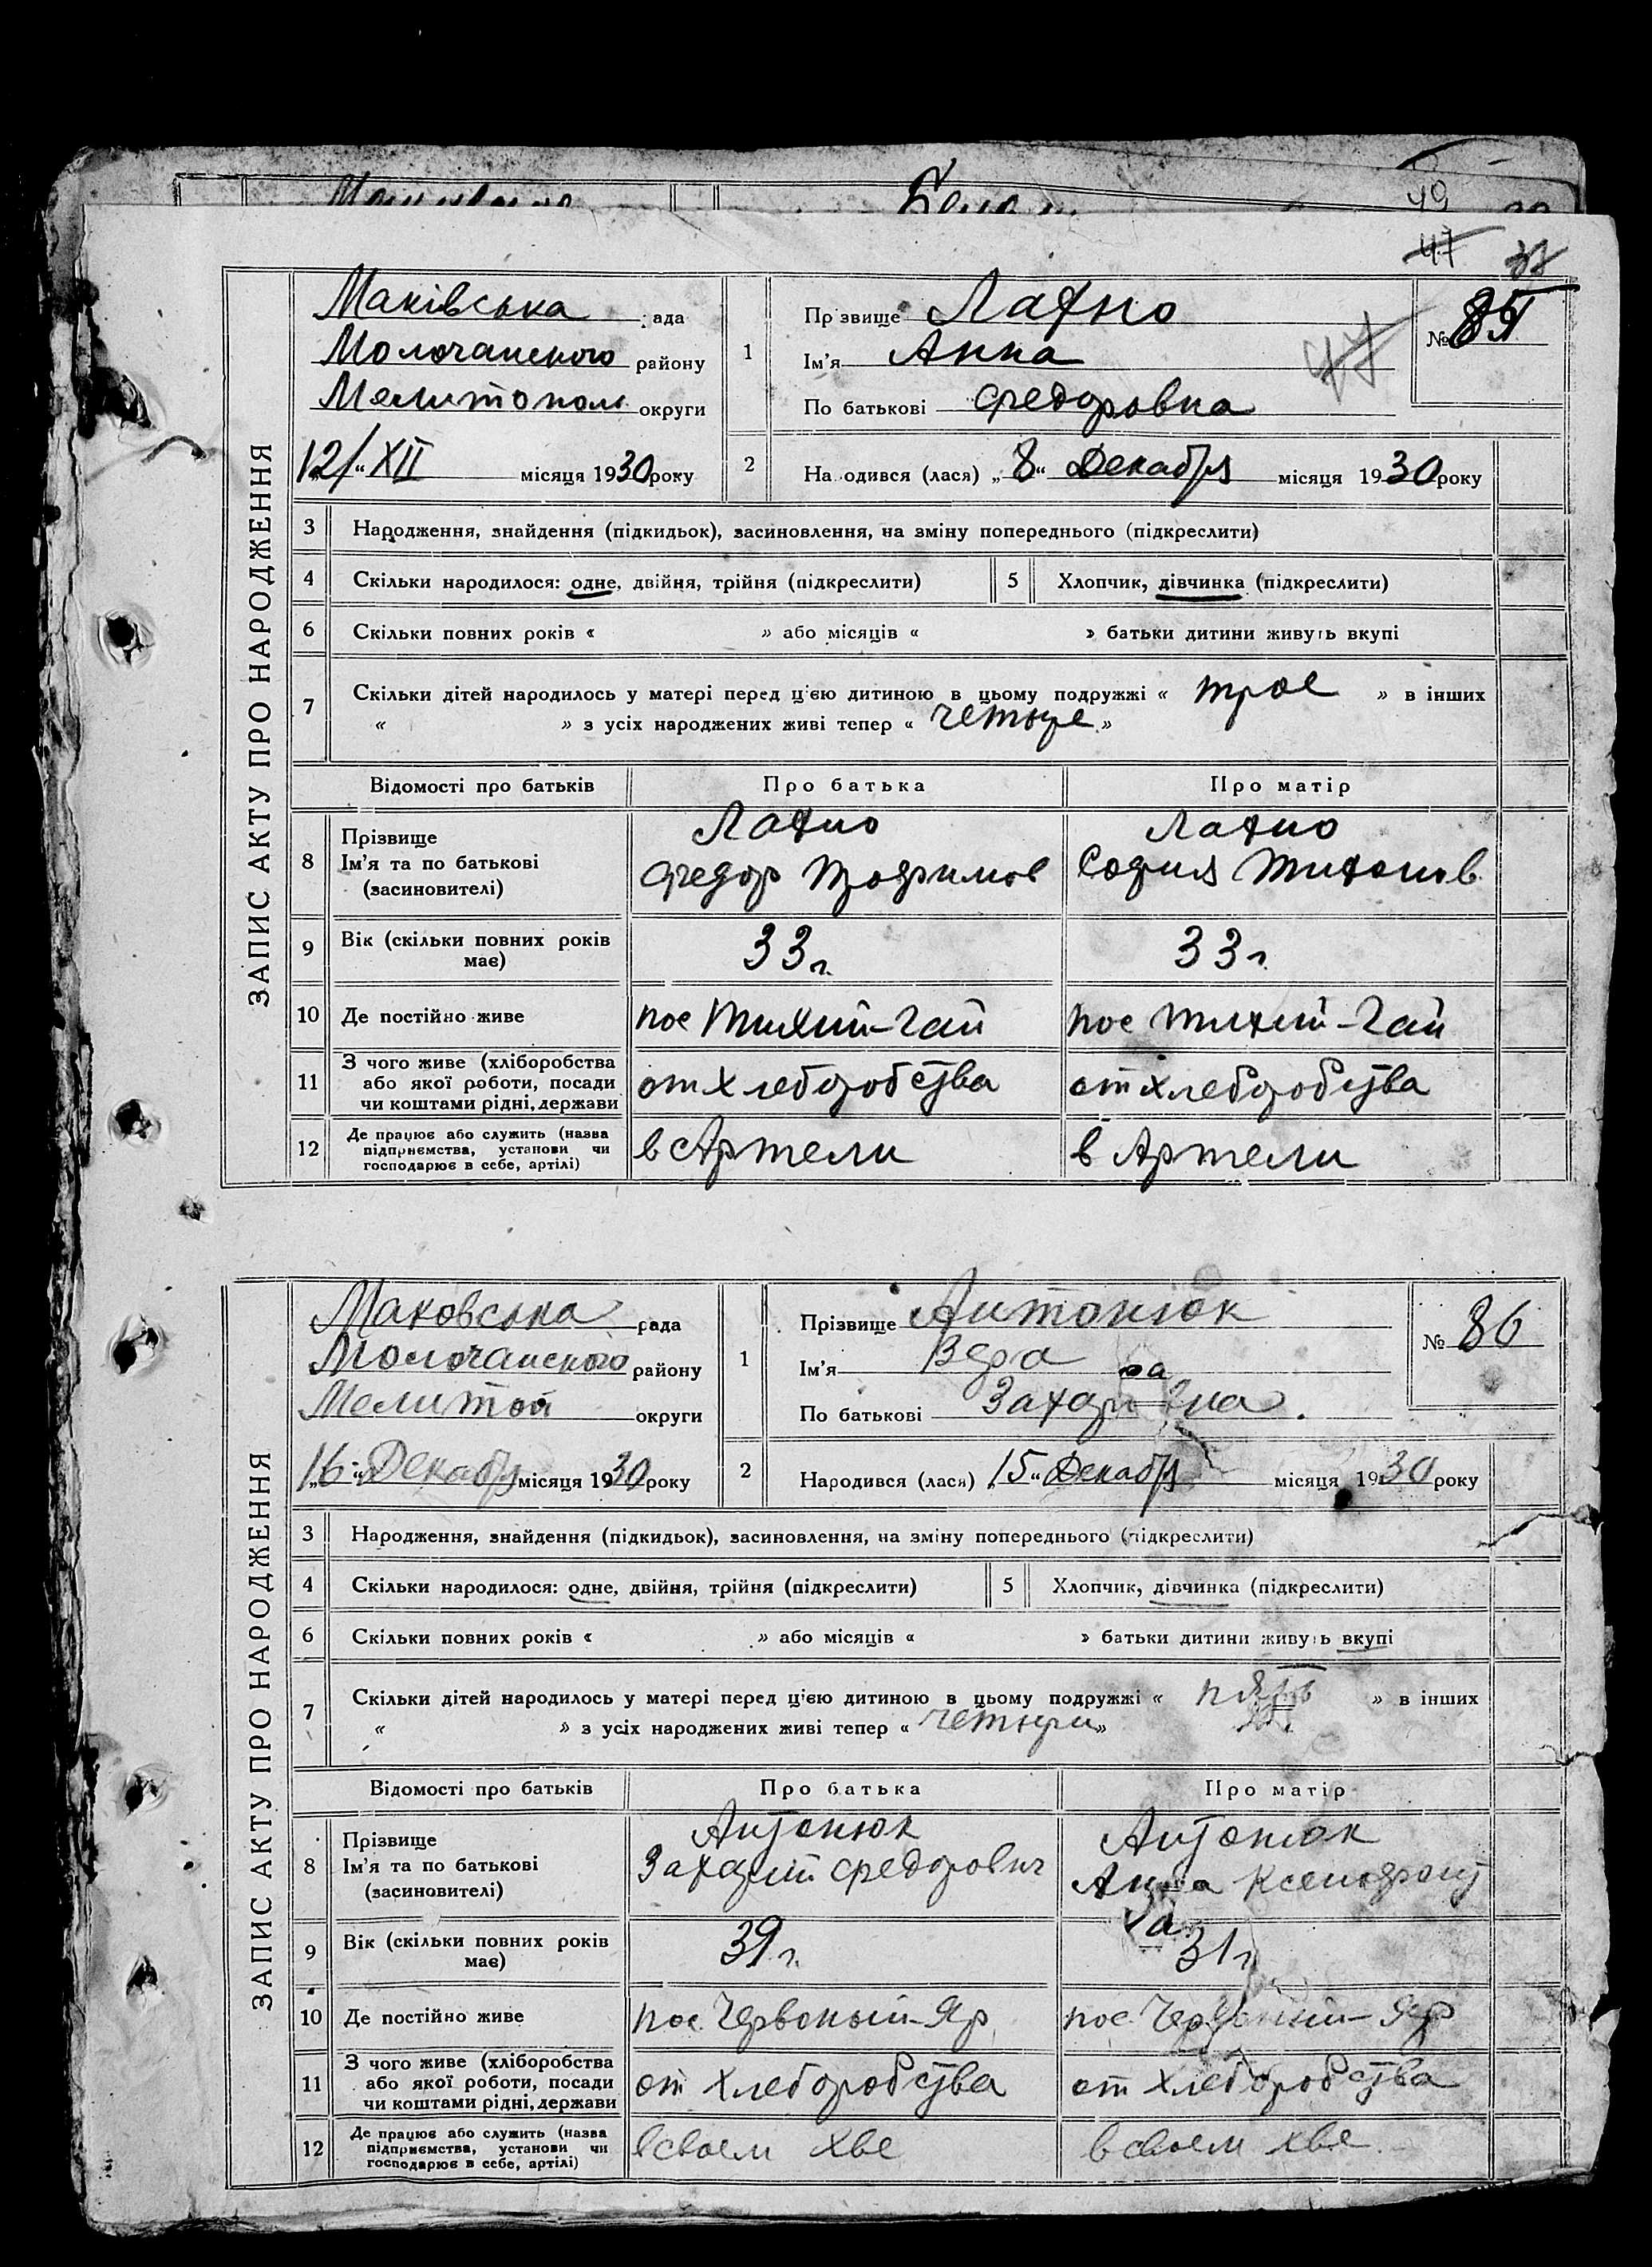 49
47 37
ЗАПИС АКТУ ПРО НАРОДЖЕННЯ
Маківська рада
Молочанського району
Мелитопол округи
12/XII місяця 1930 року
1
Прізвище Лахно
Ім'я Анна
По батькові Федоровна
№ 85
47
2
Народився (лася) „8“ Декабря місяця 1930 року
3 Народження, знайдення (підкидьок), засиновлення, на зміну попереднього (підкреслити)
4 Скільки народилося: одне, двійня, трійня (підкреслити) 5 Хлопчик, дівчинка (підкреслити)
6 Скільки повних років « » або місяців « » батьки дитини живуть вкупі
7 Скільки дітей народилось у матері перед ц'єю дитиною в цьому подружжі « трое » в інших
« » з усіх народжених живі тепер « четыре »
Відомості про батьків Про батька Про матір
8 Прізвище Лахно Лахно
Ім'я та по батькові Федор Трофимов София Тихонов
(засиновителі)
9 Вік (скільки повних років має) 33 г. 33 г.
10 Де постійно живе пос Тихий-Гай пос Тихий-Гай
11 З чого живе (хліборобства або якої роботи, посади чи коштами рідні, держави от хлеборобства от хлеборобства
12 Де працює або служить (назва підприємства, установи чи господарює в себе, артілі) в Артели в Артели
ЗАПИС АКТУ ПРО НАРОДЖЕННЯ
Маковська рада
Молочанського району
Мелитоп округи
„16“ Декабр місяця 1930 року
1
Прізвище Антонюк
Ім'я Вера
По батькові Захаровна
№ 86
2
Народився (лася) „15“ Декабр місяця 1930 року
3 Народження, знайдення (підкидьок), засиновлення, на зміну попереднього (підкреслити)
4 Скільки народилося: одне, двійня, трійня (підкреслити) 5 Хлопчик, дівчинка (підкреслити)
6 Скільки повних років « » або місяців « » батьки дитини живуть вкупі
7 Скільки дітей народилось у матері перед ц'єю дитиною в цьому подружжі « пять » в інших
« » з усіх народжених живі тепер « четыри »
Відомості про батьків Про батька Про матір
8 Прізвище Антонюк Антонюк
Ім'я та по батькові Захарий Федорович Анна Ксенофонт
(засиновителі)
9 Вік (скільки повних років має) 39 г. 31 г
10 Де постійно живе пос. Червоный-Яр пос. Червоный-Яр
11 З чого живе (хліборобства або якої роботи, посади чи коштами рідні, держави от хлеборобства от хлеборобства
12 Де працює або служить (назва підприємства, установи чи господарює в себе, артілі) в своем хве в своем хве